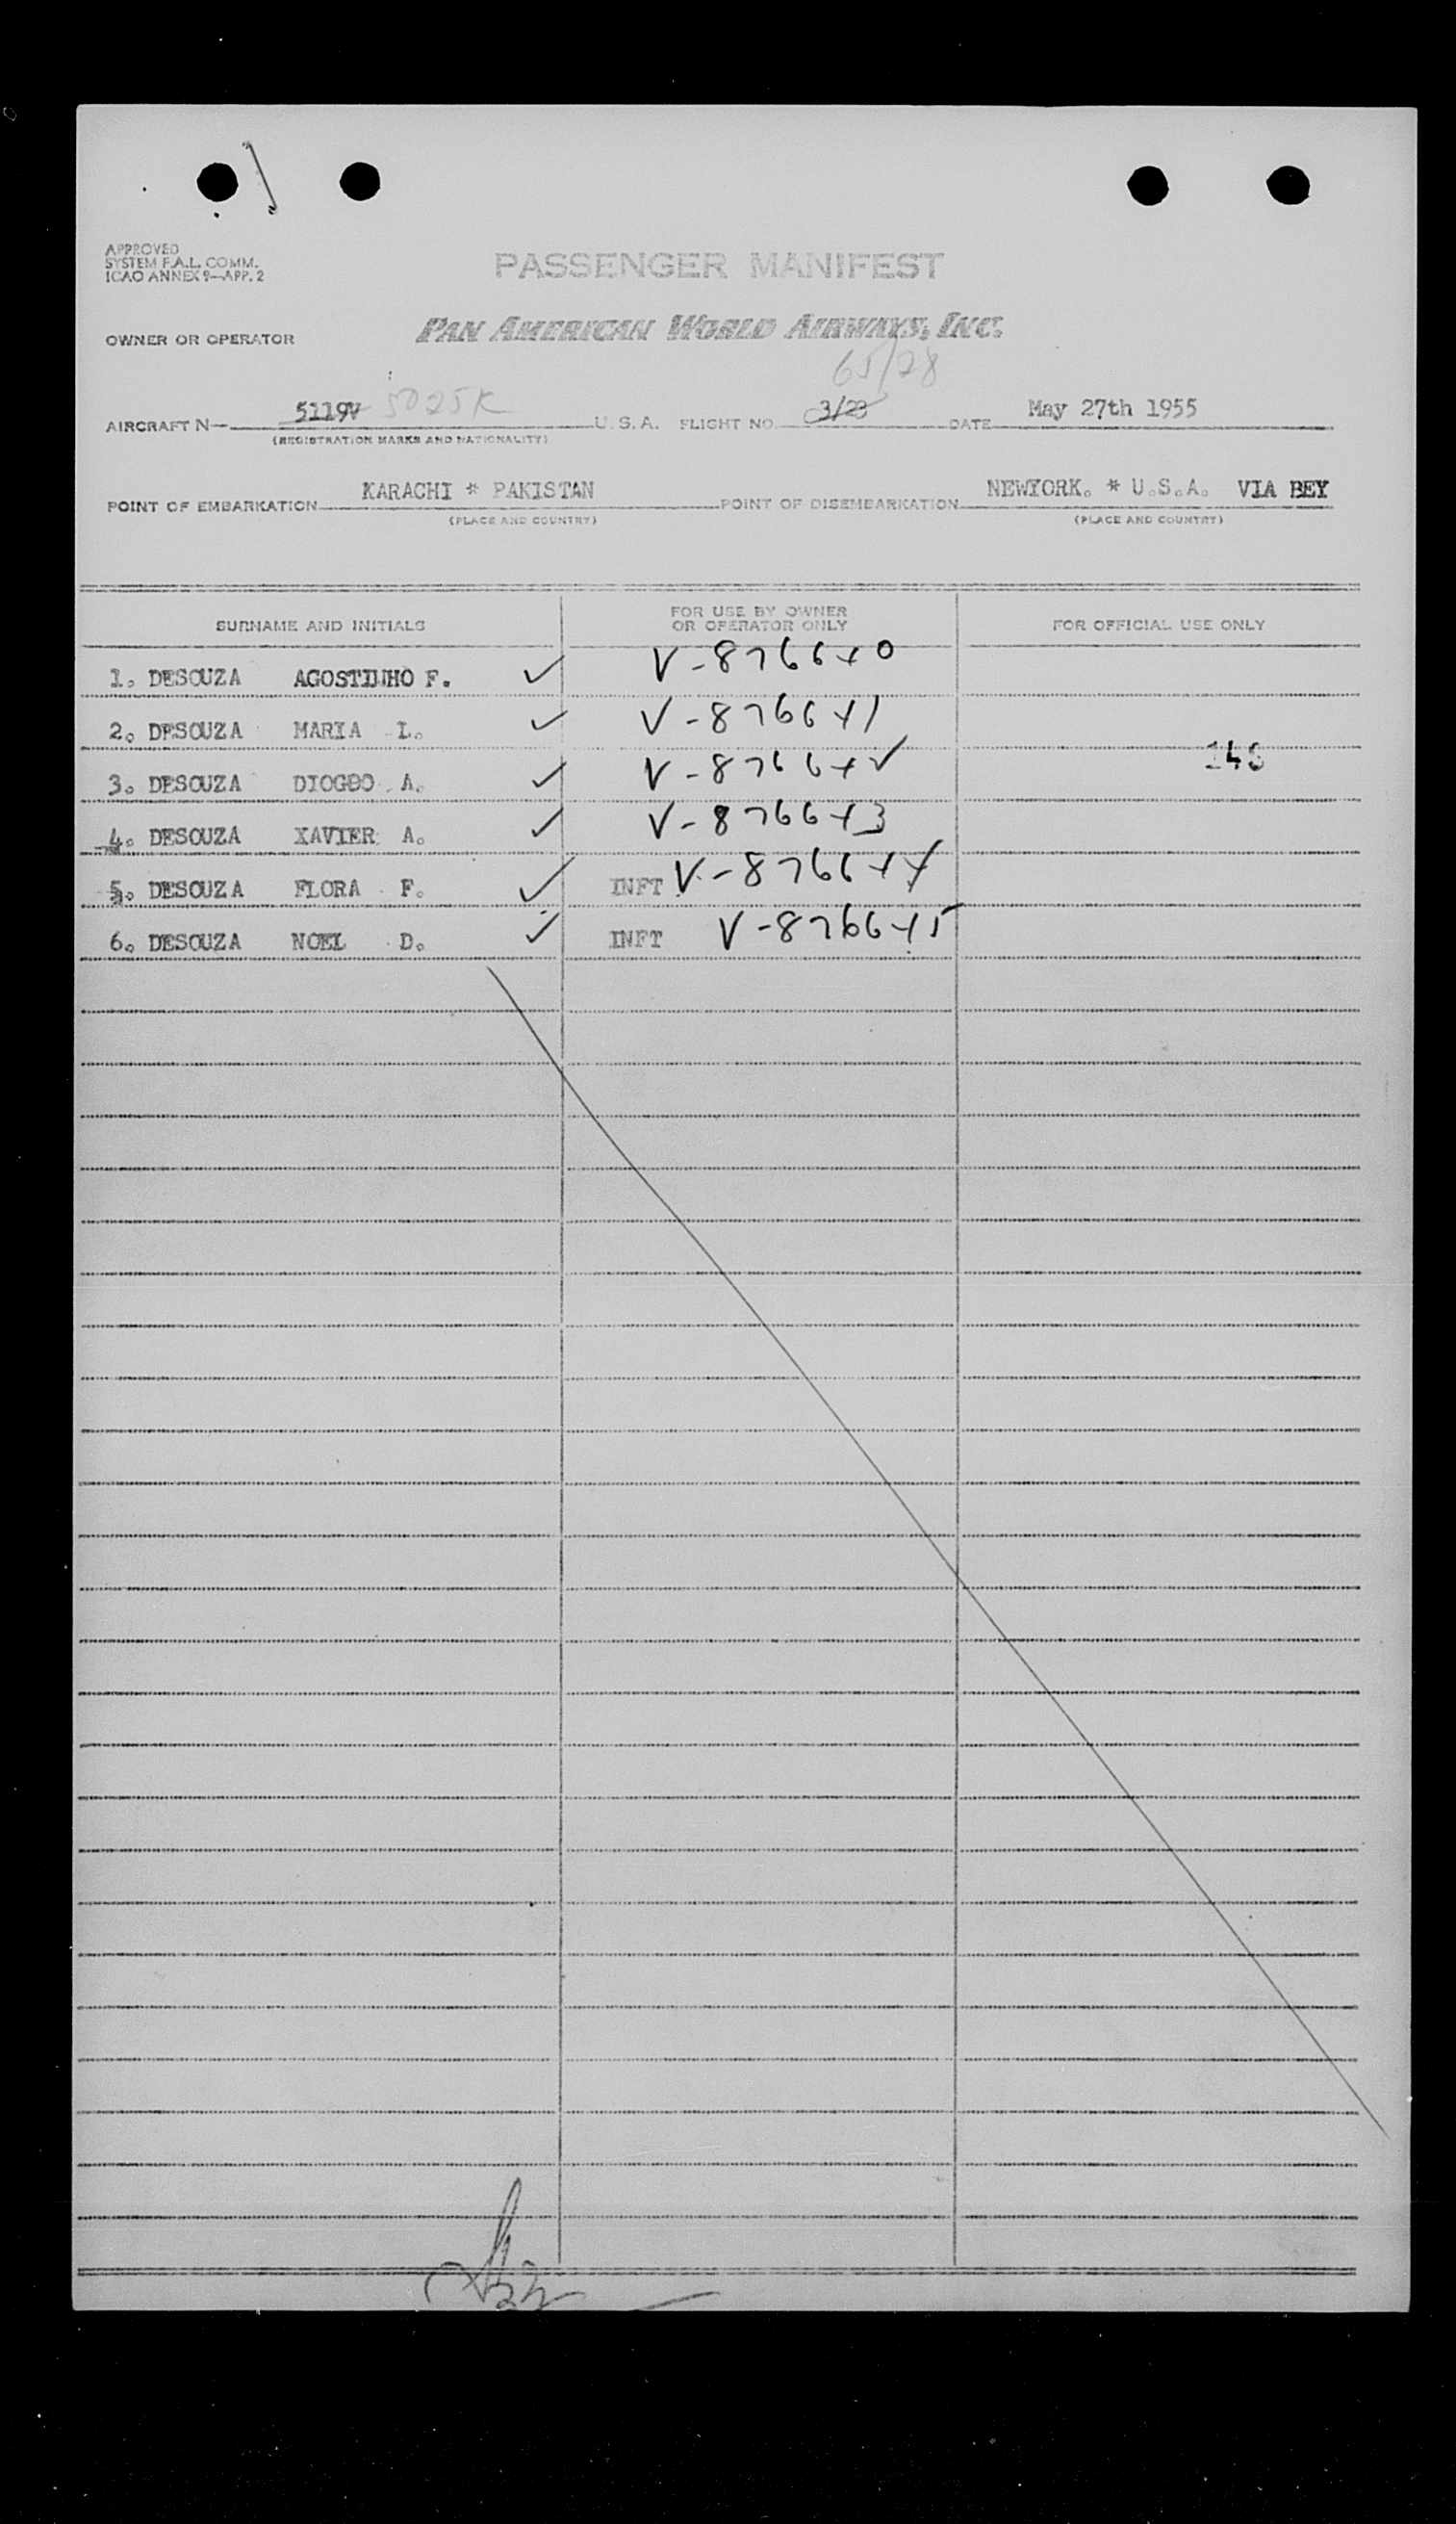 APPROVED
SYSTEM F.A.L. COMM.
ICAO ANNEX 9—APP. 2
PASSENGER MANIFEST
OWNER OR OPERATOR PAN AMERICAN WORLD AIRWAYS, INC.
65/28
AIRCRAFT N— 5119V 5025K U. S. A. FLIGHT NO. 3/28 DATE May 27th 1955
(REGISTRATION MARKS AND NATIONALITY)
POINT OF EMBARKATION KARACHI * PAKISTAN POINT OF DISEMBARKATION NEWYORK. * U.S.A. VIA BEY
(PLACE AND COUNTRY) (PLACE AND COUNTRY)
SURNAME AND INITIALS FOR USE BY OWNER OR OPERATOR ONLY FOR OFFICIAL USE ONLY
1. DESOUZA AGOSTINHO F. ✓ V-876640
2. DESOUZA MARIA L. ✓ V-876641
3. DESOUZA DIOGBO A. ✓ V-876642
4. DESOUZA XAVIER A. ✓ V-876643
5. DESOUZA FLORA F. ✓ INFT V-876644
6. DESOUZA NOEL D. ✓ INFT V-876645